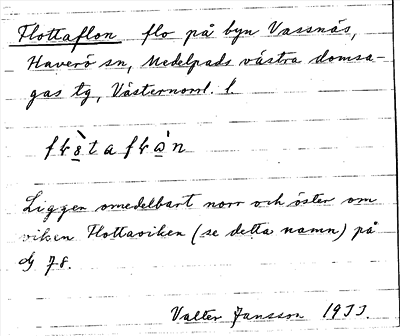 Flottaflon flo på byn Vassnäs,
Haverö sn, Medelpads västra domsa-
gas tg, Västernorrl. l.
Ligger omedelbart norr och öster om
viken Flottaviken (se detta namn) på
78.
Valter Jansson 1933.